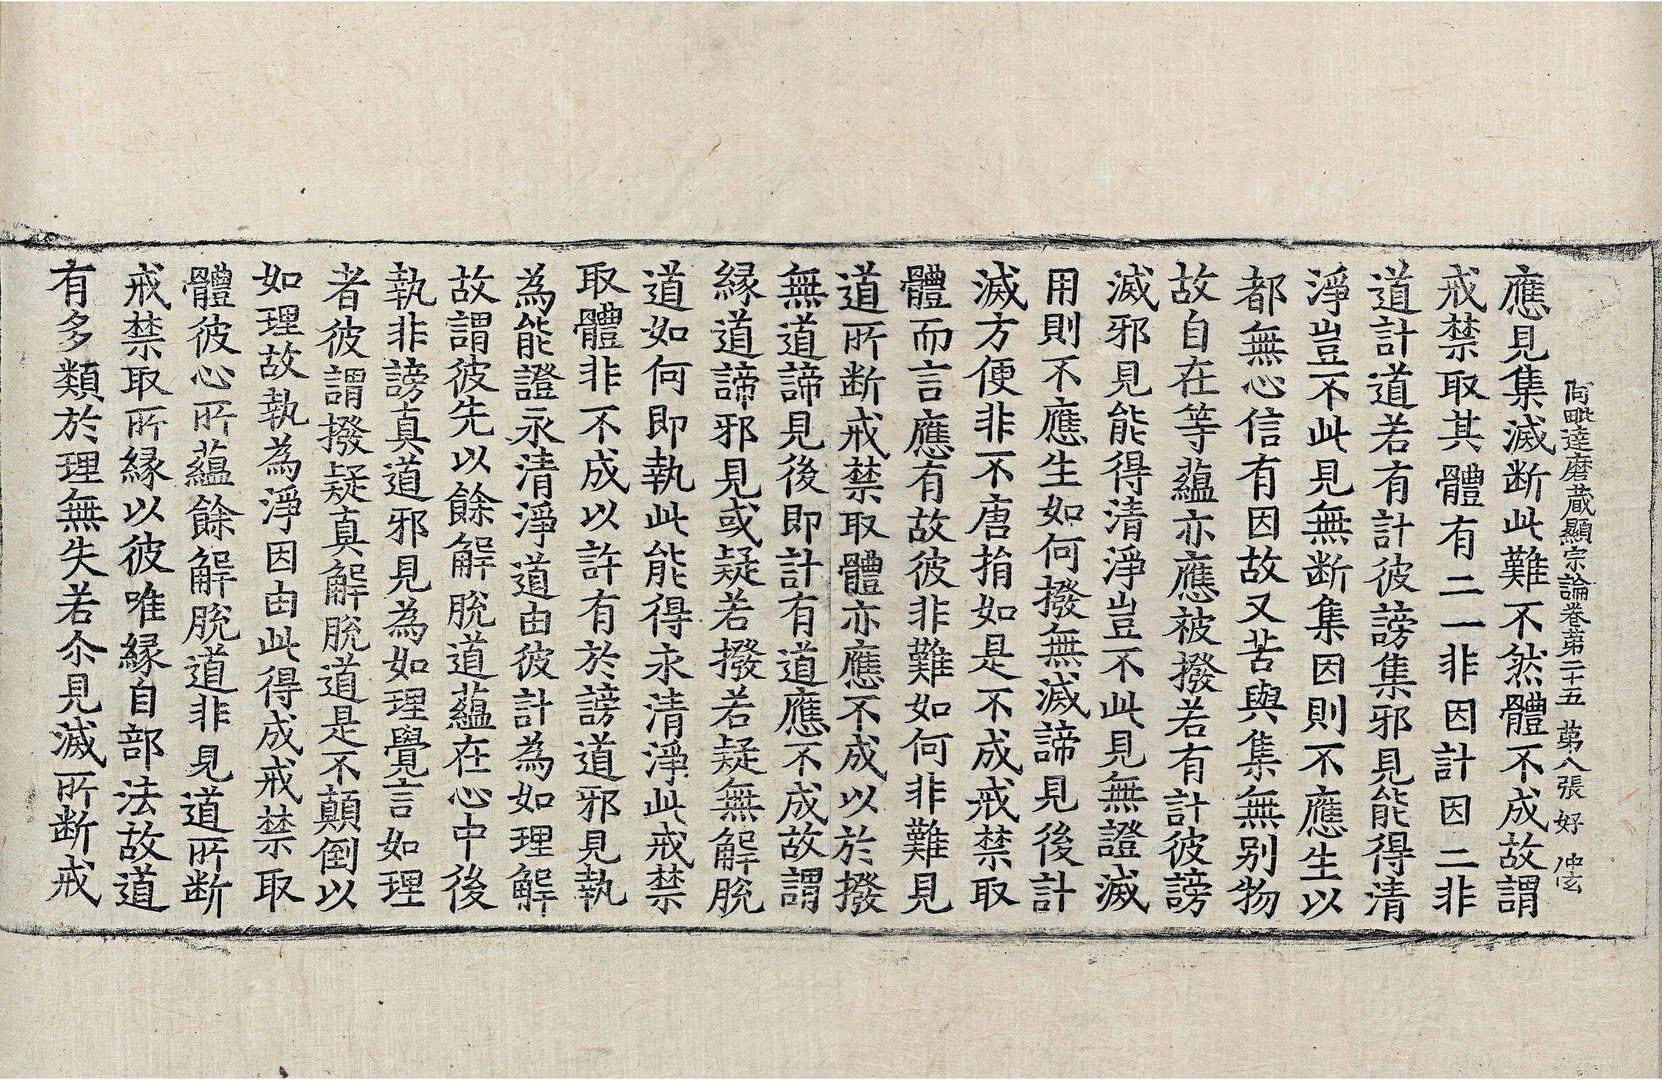 阿毗達磨蔵顯宗論卷苐二十五 苐八張 好 冲玄
應見集滅断此難不然體不成故謂
戒禁取其體有二一非因計因二非
道計道若有計彼謗集邪見能得清
淨豈不此見無断集因則不應生以
都無心信有因故又苦與集無别物
故自在等蘊亦應被撥若有計彼謗
滅邪見能得清淨豈不此見無證滅
用則不應生如何撥無滅諦見後計
滅方便非不唐捐如是不成戒禁取
體而言應有故彼非難如何非難見
道所断戒禁取體亦應不成以於撥
無道諦見後即計有道應不成故謂
緣道諦邪見或疑若撥若疑無解脫
道如何即執此能得永清淨此戒禁
取體非不成以許有於謗道邪見執
為能證永清淨道由彼計為如理解
故謂彼先以餘解脫道蘊在心中後
執非謗真道邪見為如理覺言如理
者彼謂撥疑真解脫道是不顛倒以
如理故執為淨因由此得成戒禁取
體彼心所蘊餘解脫道非見道所断
戒禁取所緣以彼唯緣自部法故道
有多類於理無失若尒見滅所断戒